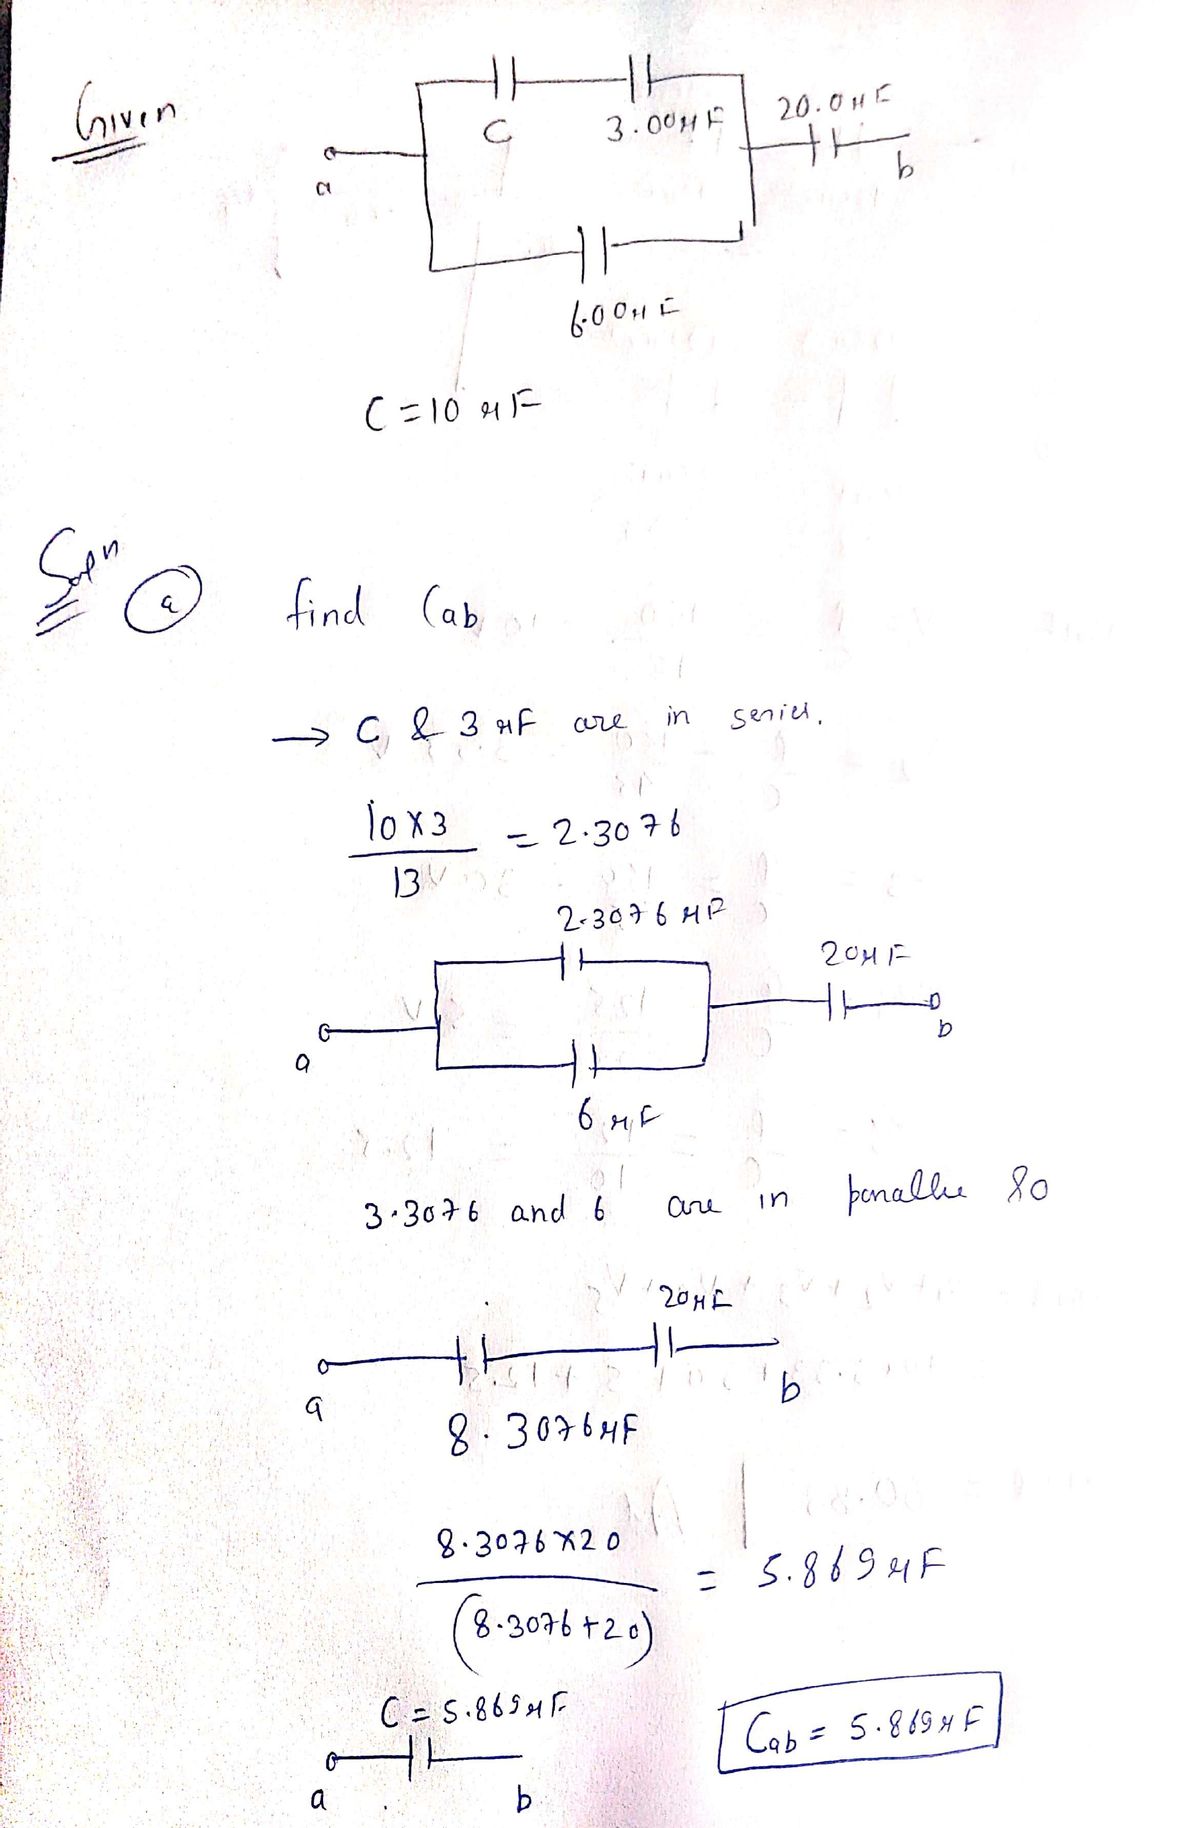 Given
C
3.00μF
20.0μF
a
b
6.00μF
C = 10 μF
Soln
a
find Cab
→ C & 3 μF are in series.
10 x 3 / 13 = 2.3076
2.3076 μF
20μF
a
b
6 μF
3.3076 and 6 are in parallle so
20μF
a
b
8.3076μF
8.3076 x 20 / (8.3076 + 20) = 5.869 μF
C = 5.869μF
Cab = 5.869μF
a
b